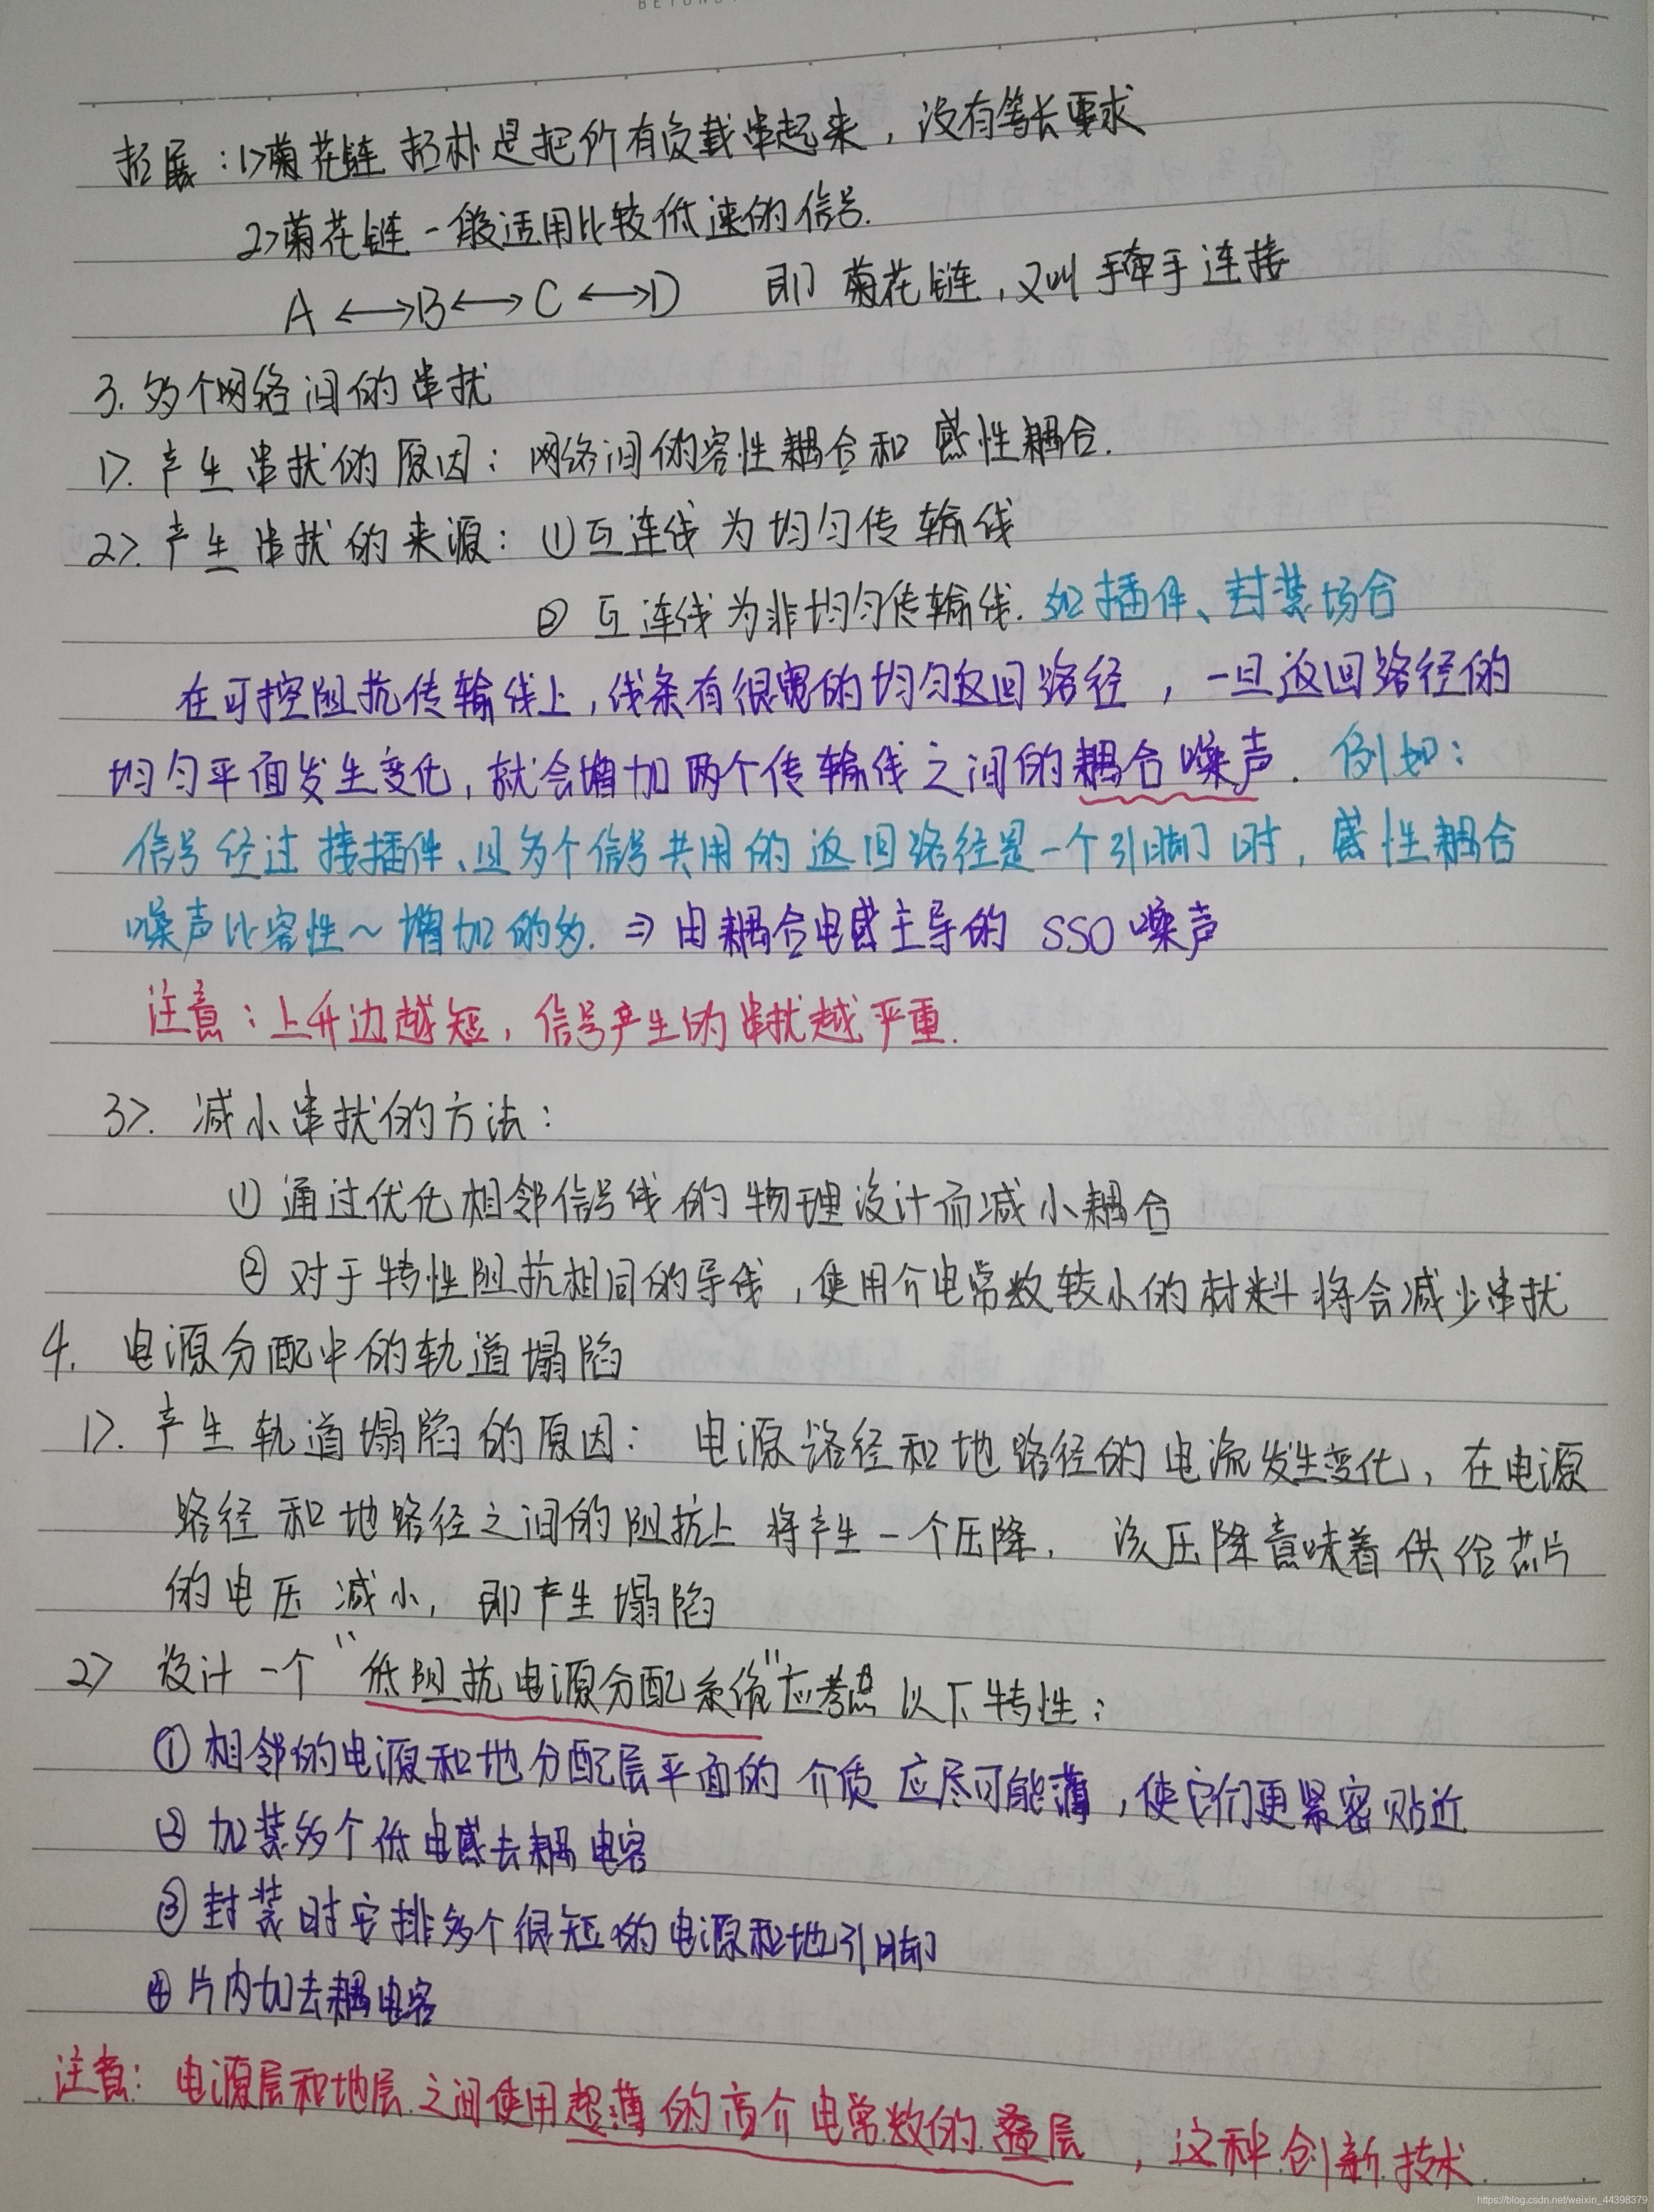 BEYOND
拓展：1>菊花链 拓扑是把所有负载串起来，没有等长要求
2>菊花链一般适用比较低速的信号.
A ⟷ B ⟷ C ⟷ D 即 菊花链，又叫 手牵手连接
3. 多个网络间的串扰
1>. 产生串扰的原因：网络间的容性耦合和 感性耦合.
2>. 产生串扰的来源：①互连线为均匀传输线
② 互连线为非均匀传输线. 如插件、封装场合
在可控阻抗传输线上，线条有很宽的均匀返回路径，一旦返回路径的
均匀平面发生变化，就会增加两个传输线之间的耦合噪声. 例如：
信号经过接插件、且多个信号共用的返回路径是一个引脚时，感性耦合
噪声比容性～增加的多. ⇒ 由耦合电感主导的 SSO 噪声
注意：上升边越短，信号产生的串扰越严重.
3>. 减小串扰的方法：
① 通过优化相邻信号线的物理设计而减小耦合
② 对于特性阻抗相同的导线，使用介电常数较小的材料将会减少串扰
4. 电源分配中的轨道塌陷
1>. 产生轨道塌陷的原因：电源路径和地路径的电流发生变化，在电源
路径和地路径之间的阻抗上将产生一个压降，该压降意味着供给芯片
的电压减小，即产生塌陷
2> 设计一个“低阻抗电源分配系统”应考虑以下特性：
① 相邻的电源和地分配层平面的介质应尽可能薄，使它们更紧密贴近
② 加装多个低电感去耦电容
③ 封装时安排多个很短的电源和地引脚
④ 片内加去耦电容
注意：电源层和地层之间使用超薄的高介电常数的叠层，这种创新技术
https://blog.csdn.net/weixin_44398379